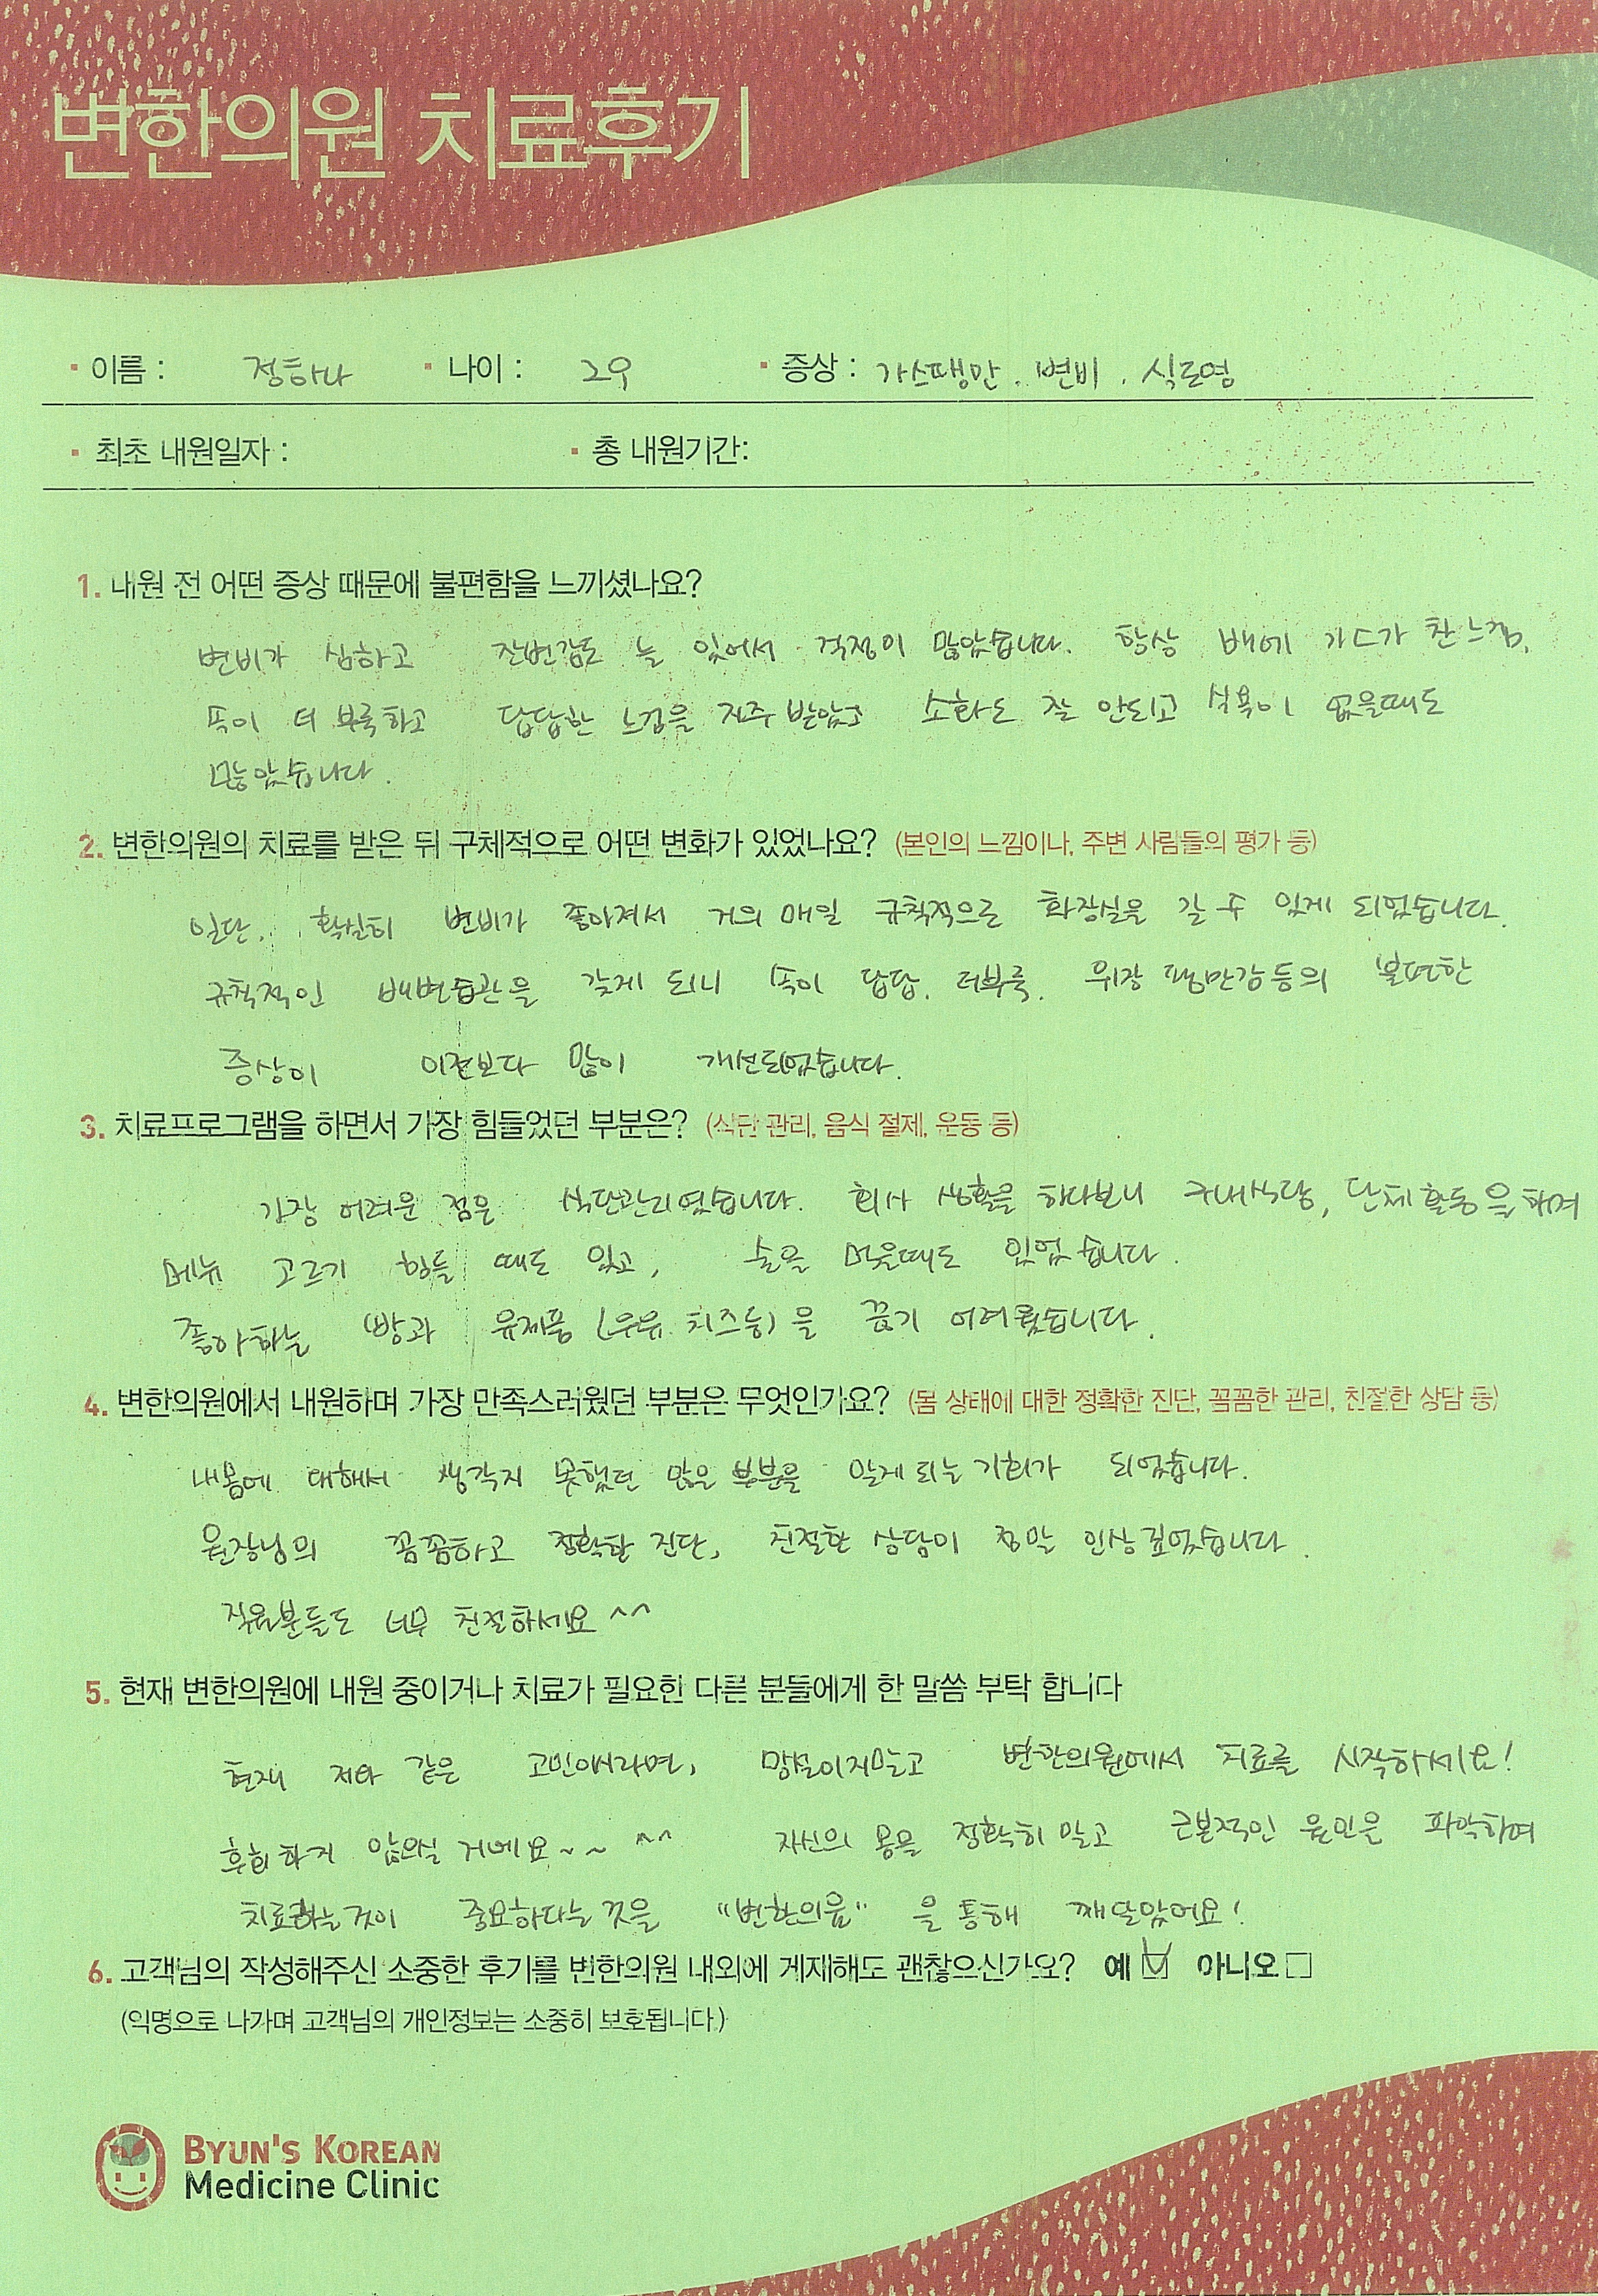 변한의원 치료후기
· 이름 : 정하나 · 나이 : 29 · 증상 : 가스팽만. 변비. 식도염
· 최초 내원일자 : · 총 내원기간:
1. 내원 전 어떤 증상 때문에 불편함을 느끼셨나요?
변비가 심하고 잔변감도 늘 있어서 걱정이 많았습니다. 항상 배에 가스가 찬 느낌,
속이 더부룩하고 답답한 느낌을 자주 받았고 소화도 잘 안되고 식욕이 없을때도
많았습니다.
2. 변한의원의 치료를 받은 뒤 구체적으로 어떤 변화가 있었나요? (본인의 느낌이나, 주변 사람들의 평가 등)
일단, 확실히 변비가 좋아져서 거의 매일 규칙적으로 화장실을 갈 수 있게 되었습니다.
규칙적인 배변습관을 갖게 되니 속이 답답. 더부룩. 위장 팽만감등의 불편한
증상이 이전보다 많이 개선되었습니다.
3. 치료프로그램을 하면서 가장 힘들었던 부분은? (식단 관리, 음식 절제, 운동 등)
가장 어려운 점은 식단관리였습니다. 회사 생활을 하다보니 구내식당, 단체활동을 하며
메뉴 고르기 힘들 때도 있고, 술을 먹을때도 있었습니다.
좋아하는 빵과 유제품 (우유 치즈등)을 끊기 어려웠습니다.
4. 변한의원에서 내원하며 가장 만족스러웠던 부분은 무엇인가요? (몸 상태에 대한 정확한 진단, 꼼꼼한 관리, 친절한 상담 등)
내몸에 대해서 생각지 못했던 많은 부분을 알게되는 기회가 되었습니다.
원장님의 꼼꼼하고 정확한 진단, 친절한 상담이 정말 인상깊었습니다.
직원분들도 너무 친절하세요 ^^
5. 현재 변한의원에 내원 중이거나 치료가 필요한 다른 분들에게 한 말씀 부탁 합니다
현재 저와 같은 고민이시라면, 망설이지말고 변한의원에서 치료를 시작하세요!
후회하지 않으실 거예요~~ ^^ 자신의 몸을 정확히 알고 근본적인 원인을 파악하여
치료하는것이 중요하다는 것을 "변한의원" 을 통해 깨달았어요!
6. 고객님의 작성해주신 소중한 후기를 변한의원 내외에 게재해도 괜찮으신가요? 예 ☑ 아니오 □
(익명으로 나가며 고객님의 개인정보는 소중히 보호됩니다.)
BYUN'S KOREAN
Medicine Clinic